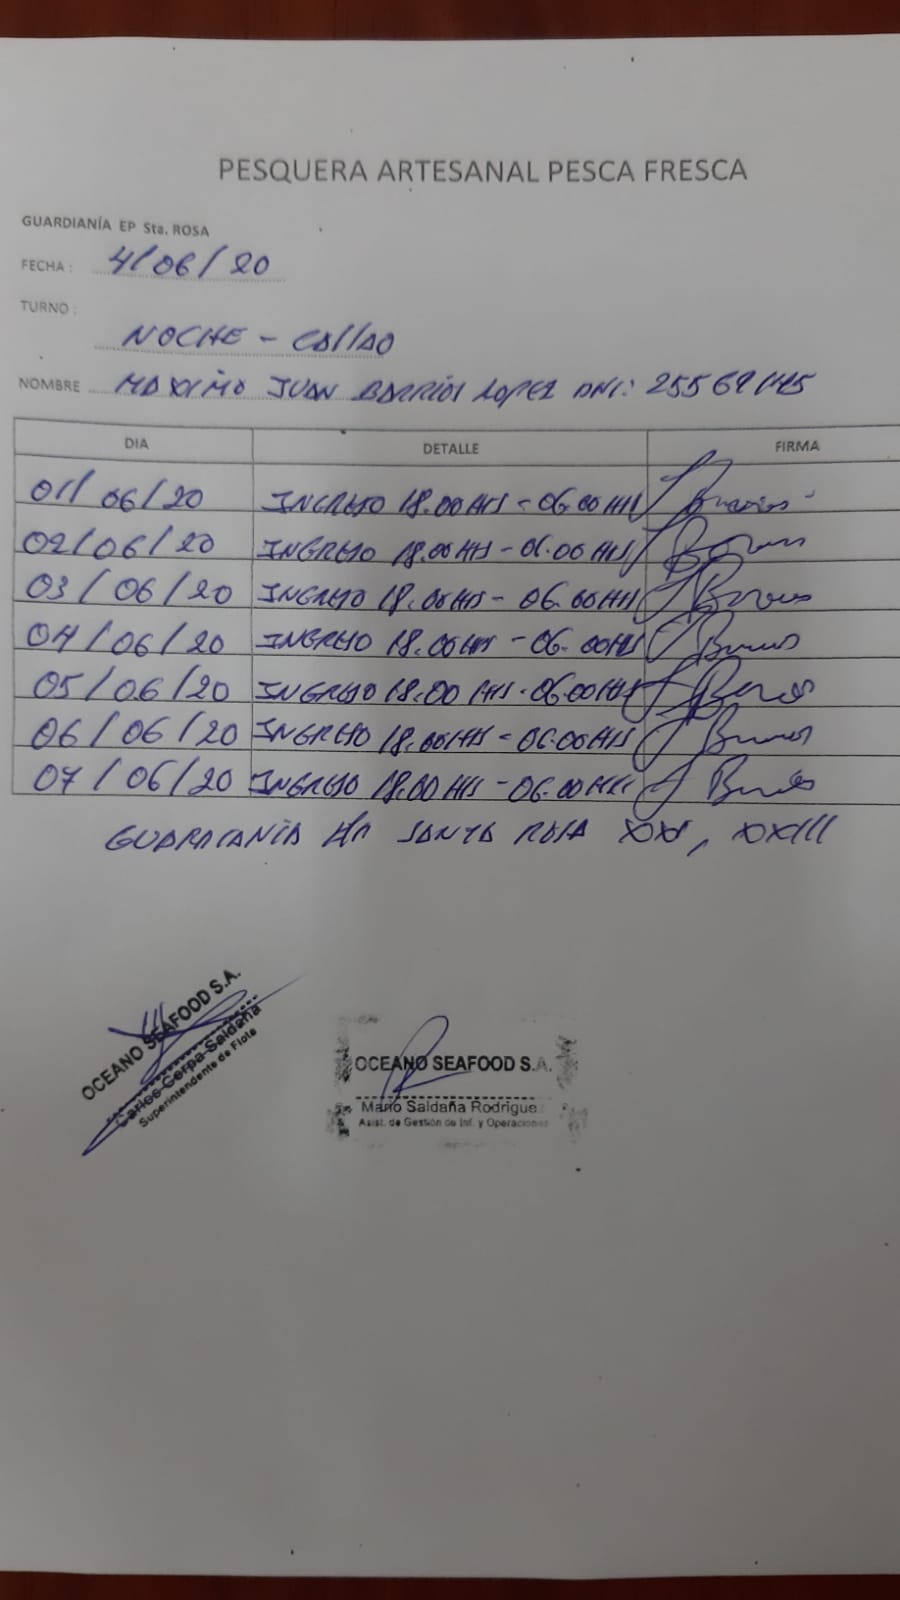 PESQUERA ARTESANAL PESCA FRESCA
GUARDIANÍA EP Sta. ROSA
FECHA: 4/06/20
TURNO:
NOCHE - CALLAO
NOMBRE MAXIMO JUAN BARRIOS LOPEZ DNI:
DIA DETALLE FIRMA
01/06/20 INGRESO 18.00 HRS - 06.00 HRS
02/06/20 INGRESO 18.00 HRS - 06.00 HRS
03/06/20 INGRESO 18.00 HRS - 06.00 HRS
04/06/20 INGRESO 18.00 HRS - 06.00 HRS
05/06/20 INGRESO 18.00 HRS - 06.00 HRS
06/06/20 INGRESO 18.00 HRS - 06.00 HRS
07/06/20 INGRESO 18.00 HRS - 06.00 HRS
SANTA ROSA XXIII
OCEANO SEAFOOD S.A.
Carlos Cerpa Saldaña
Superintendente de Flota
OCEANO SEAFOOD S.A.
Mario Saldaña Rodrigue
Asist. de Gestión de Inf. y Operaciones